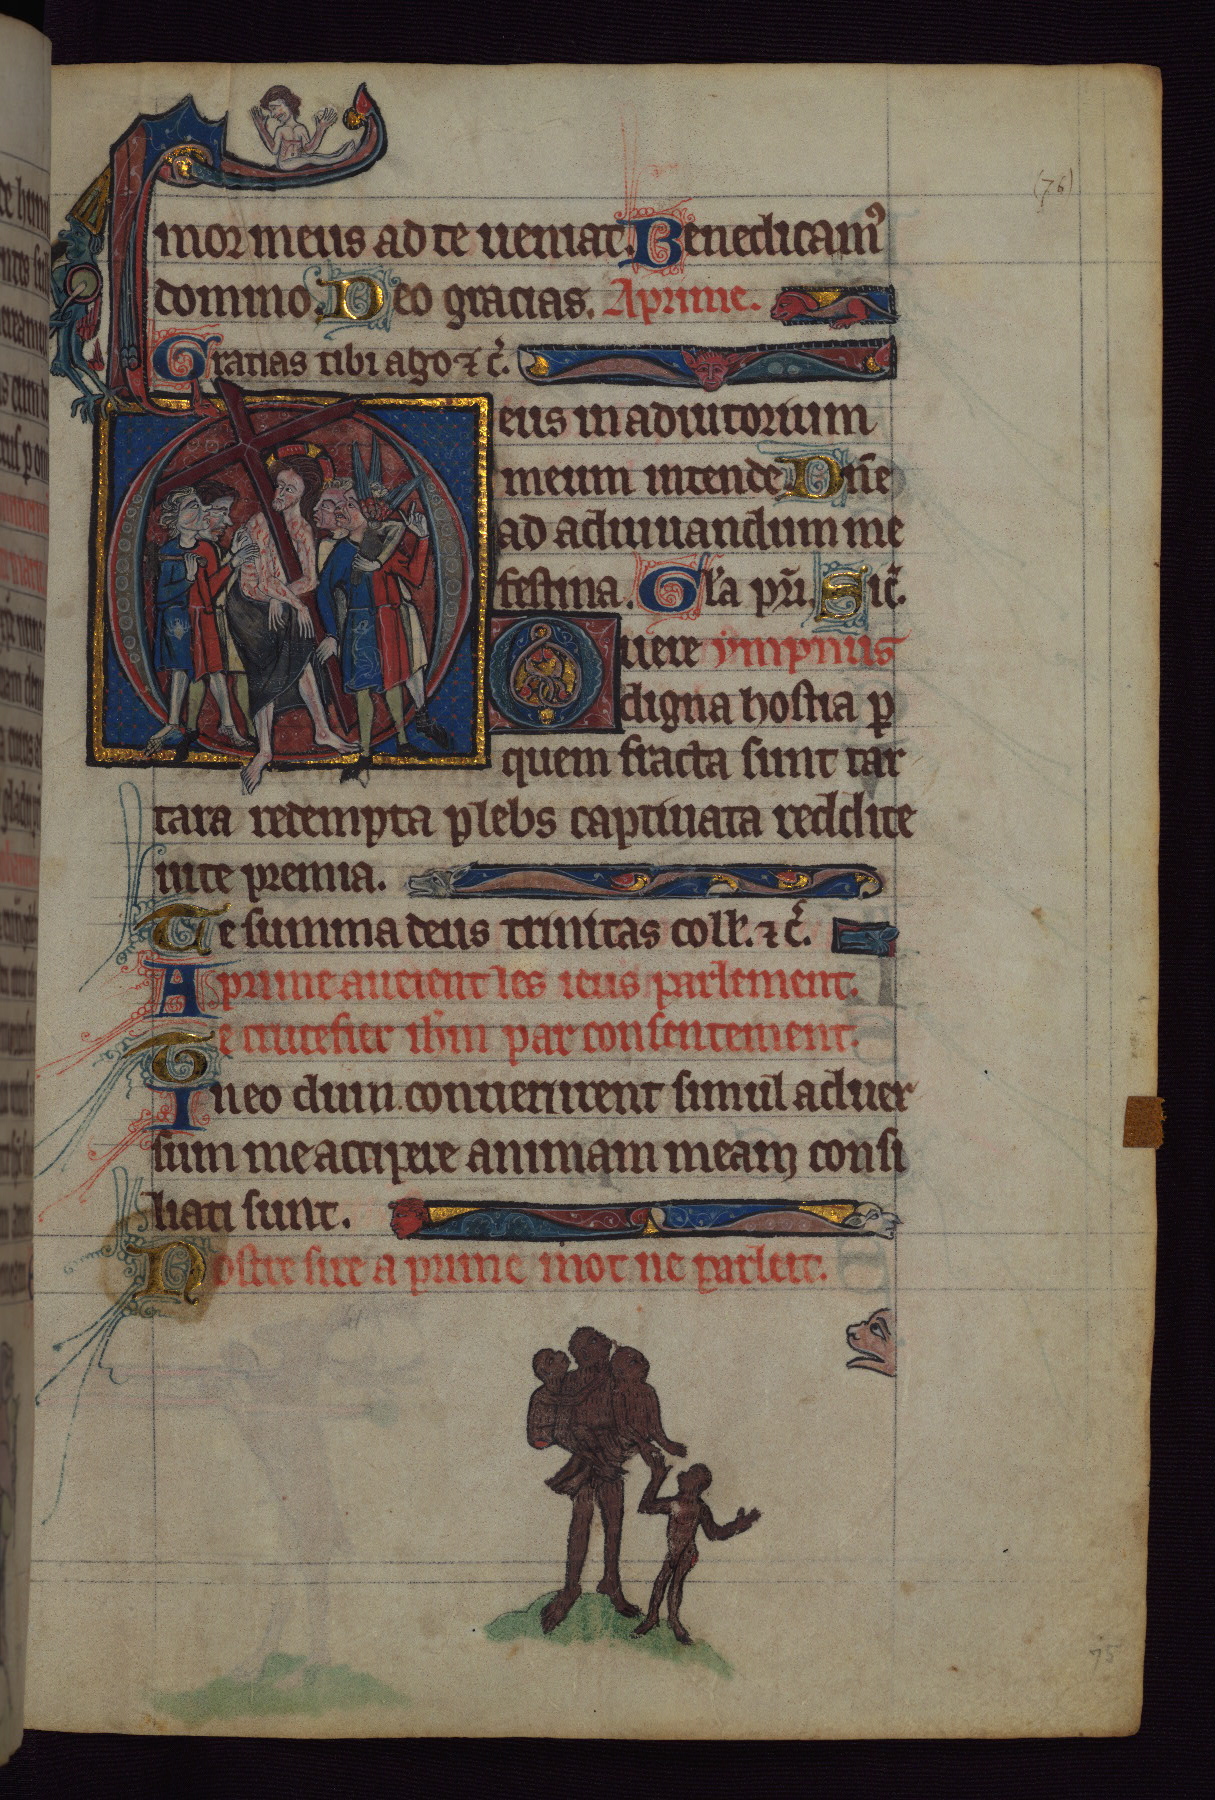 (76)
mor meus ad te ueniat. Benedicamꝰ
domino. Deo gracias. A prime.
Gracias tibi ago ⁊ c̃.
eus in adiutorium
meum intende Dn̄e
ad adiuuandum me
festina. Gl'a pr̃i. Sic̃.
uere ympnus
digna hostia ꝑ
quem fracta sunt tar
tara redempta plebs captiuata reddite
uite premia.
Te summa deus trinitas coll'. ⁊ c̃.
A prime aueient les ieus parlement.
De crucefier ih̄m par consentement.
In eo dum conuenirent simul aduer
sum me accipere animam meam consi
liati sunt.
Nostre sire a prime mot ne parleit.
75